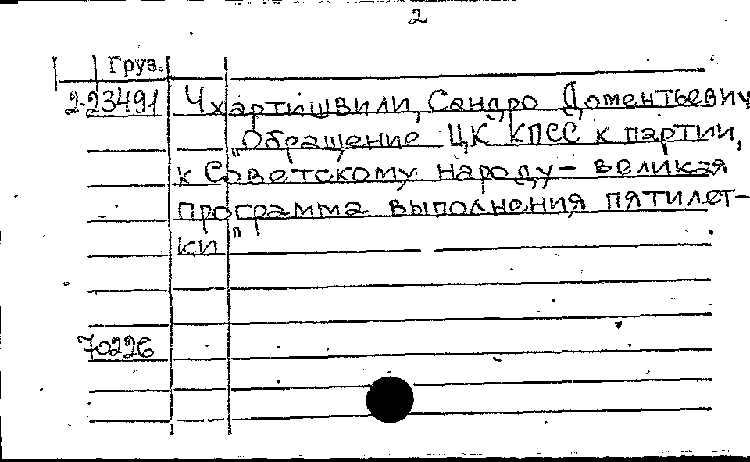 2
Груз.
2-23491 Чхартишвили, Сандро Доментьевич
"Обращение ЦК КПСС к партии,
к Советскому народу - великая
программа выполнения пятилет-
ки"
70226